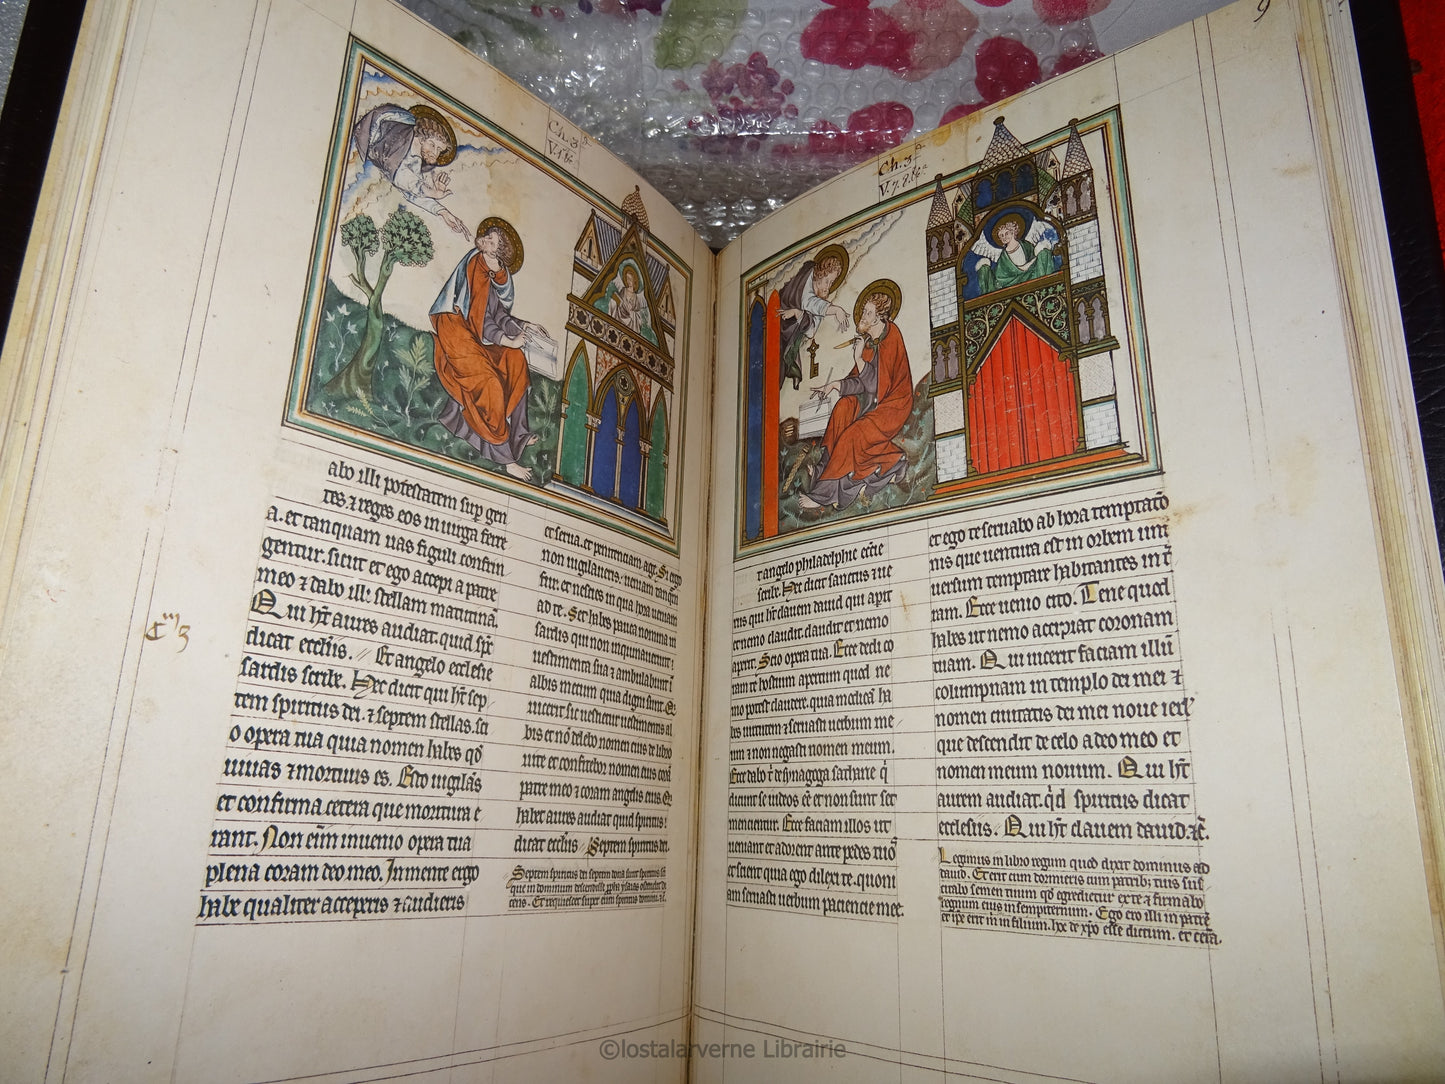 9
Ch. 3
V. 1. &c
abo illi potestatem sup gen
tes. ⁊ reges eos in uirga ferre
a. et tanquam uas figuli confrin
gentur. sicut et ego accepi a patre
meo ⁊ dabo illi stellam matutinā.
Qui ht aures audiat. quid spc
dicat ecclīis. Et angelo ecclesie
sardis scribe. Hec dicit qui ht sep
tem spiritus dei. ⁊ septem stellas. sci
o opera tua quia nomen habes qđ
uiuas ⁊ mortuus es. Esto uigilās
et confirma cetera que moritura e
rant. Non enīm inuenio opera tua
plena coram deo meo. In mente ergo
habe qualiter acceperis ⁊ audieris
C iij 3
et serua. et penitenciam age. Si ergo
non uigilaueris. ueniam tanqm
fur. et nescies in qua hora ueniam
ad te. Set habes pauca nomina in
sardis qui non inquinauerunt
uestimenta sua ⁊ ambulabunt ī
albis mecum quia digni sunt. Q
uicerit sic uestietur uestimentis al
bis et nō delebo nomen eius de libro
uite et confitebor nomen eius corā
patre meo ⁊ coram angelis eius. Q
habet aures audiat quid spiritus
dicat ecclīis Septem spiritus dei.
Septem spiritus dei septem dona sunt spiritus sci
Ch. 3
V. 7. 8. &c
t angelo philadelphie eccīe
scribe. Hec dicit sanctus ⁊ ue
rus qui ht clauem dauid qui aperit
et nemo claudit. claudit et nemo
aperit. Scio opera tua. Ecce dedi co
ram te hostium apertum quod ne
mo potest claudere. quia modicā ha
bes uirtutem ⁊ seruasti uerbum me
um ⁊ non negasti nomen meum.
Ecce dabo t̄ de synagoga sathane q̄
dicunt se iudeos eē et non sunt set
menciuntur. Ecce faciam illos ut
ueniant et adorent ante pedes tuos
et scient quia ego dilexi te. quoni
am seruasti uerbum paciencie mee.
et ego te seruabo ab hora temptatō
nis que uentura est in orbem uni
uersum temptare habitantes in t̄
ram. Ecce uenio cito. Tene quod
habes ut nemo accipiat coronam
tuam. Qui uicerit faciam illū
columpnam in templo dei mei ⁊
nomen ciuitatis dei mei noue ierl'
que descendit de celo a deo meo et
nomen meum nouum. Qui ht
aurem audiat. qđ spiritus dicat
ecclesiis. Qui ht clauem dauid. ⁊c.
Legimus in libro regum quod dixit dominus ad
dauid. Et erit cum dormieris cum patribȝ tuis sus
citabo semen tuum qđ egredietur ex te ⁊ firmabo
regnum eius in sempiternum. Ego ero illi in patrē
et ipse erit m̄ in filium. hoc de xp̄o esse dictum. et cetera.
©lostalarverne Librairie